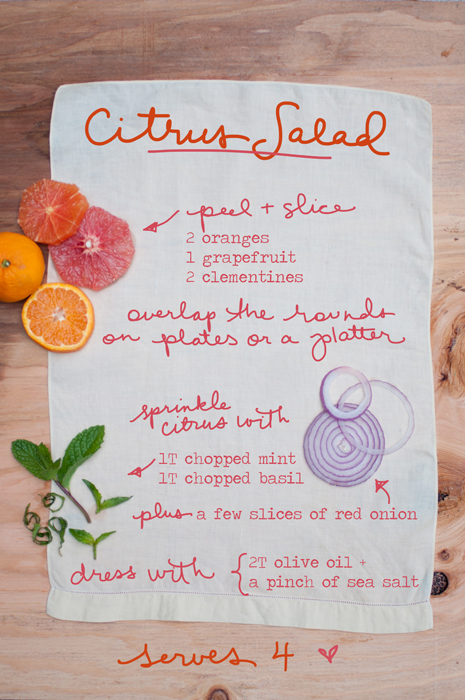 Citrus Salad
peel + slice
2 oranges
1 grapefruit
2 clementines
overlap the rounds
on plates or a platter
sprinkle
citrus with
1T chopped mint
1T chopped basil
plus a few slices of red onion
dress with { 2T olive oil +
a pinch of sea salt
serves 4